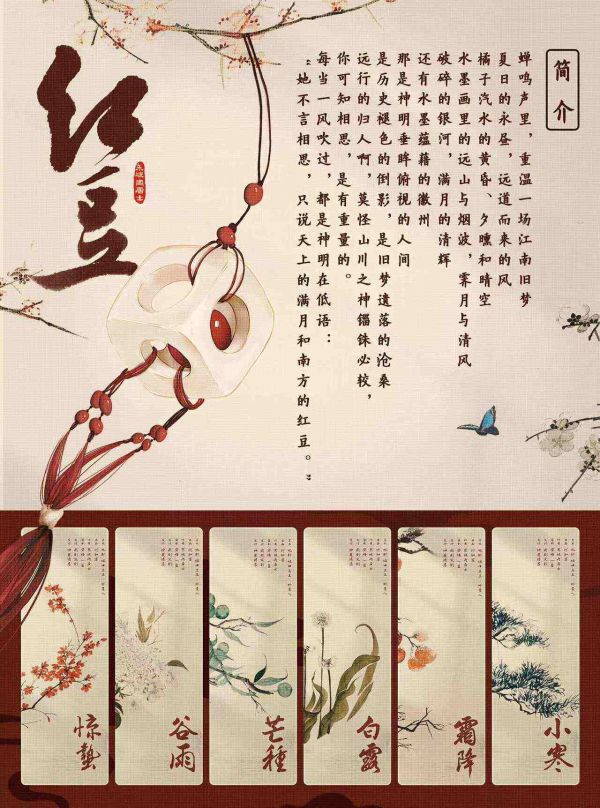 红豆
简介
蝉鸣声里，重温一场江南旧梦
夏日的永昼，远道而来的风
橘子汽水的黄昏、夕曛和晴空
水墨画里的远山与烟波，霁月与清风
破碎的银河，满月的清辉
还有水墨蕴藉的徽州
那是神明垂眸俯视的人间
是历史褪色的倒影，是旧梦遗落的沧桑
远行的归人啊，莫怪山川之神锱铢必较，
你可知相思，是有重量的。
每当一风吹过，都是神明在低语：
“她不言相思，只说天上的满月和南方的红豆。”
惊蛰
谷雨
芒種
白露
霜降
小寒